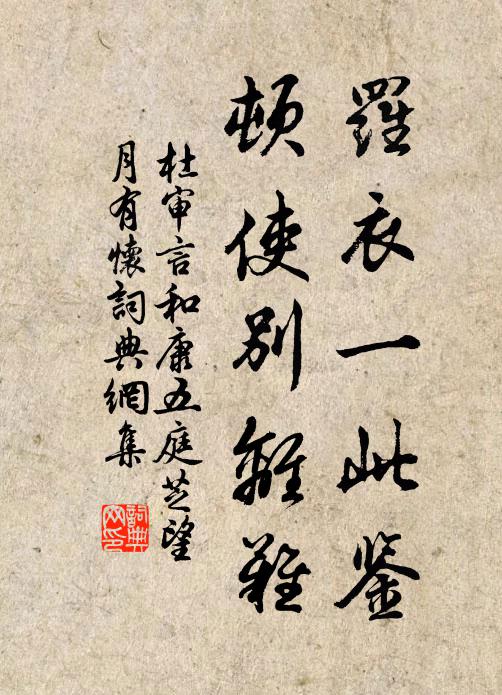 羅衣一此鉴
頓使别離難
杜审言和康五庭芝望
月有懷詞典網集
詞典
网印